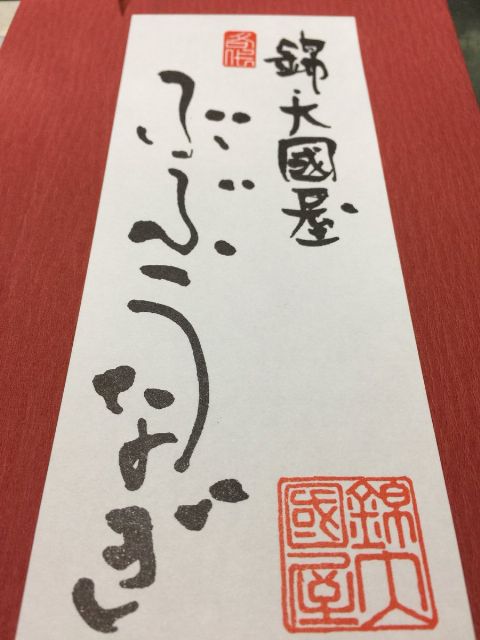 錦・大國屋
ぶぶうなぎ
錦大
國屋